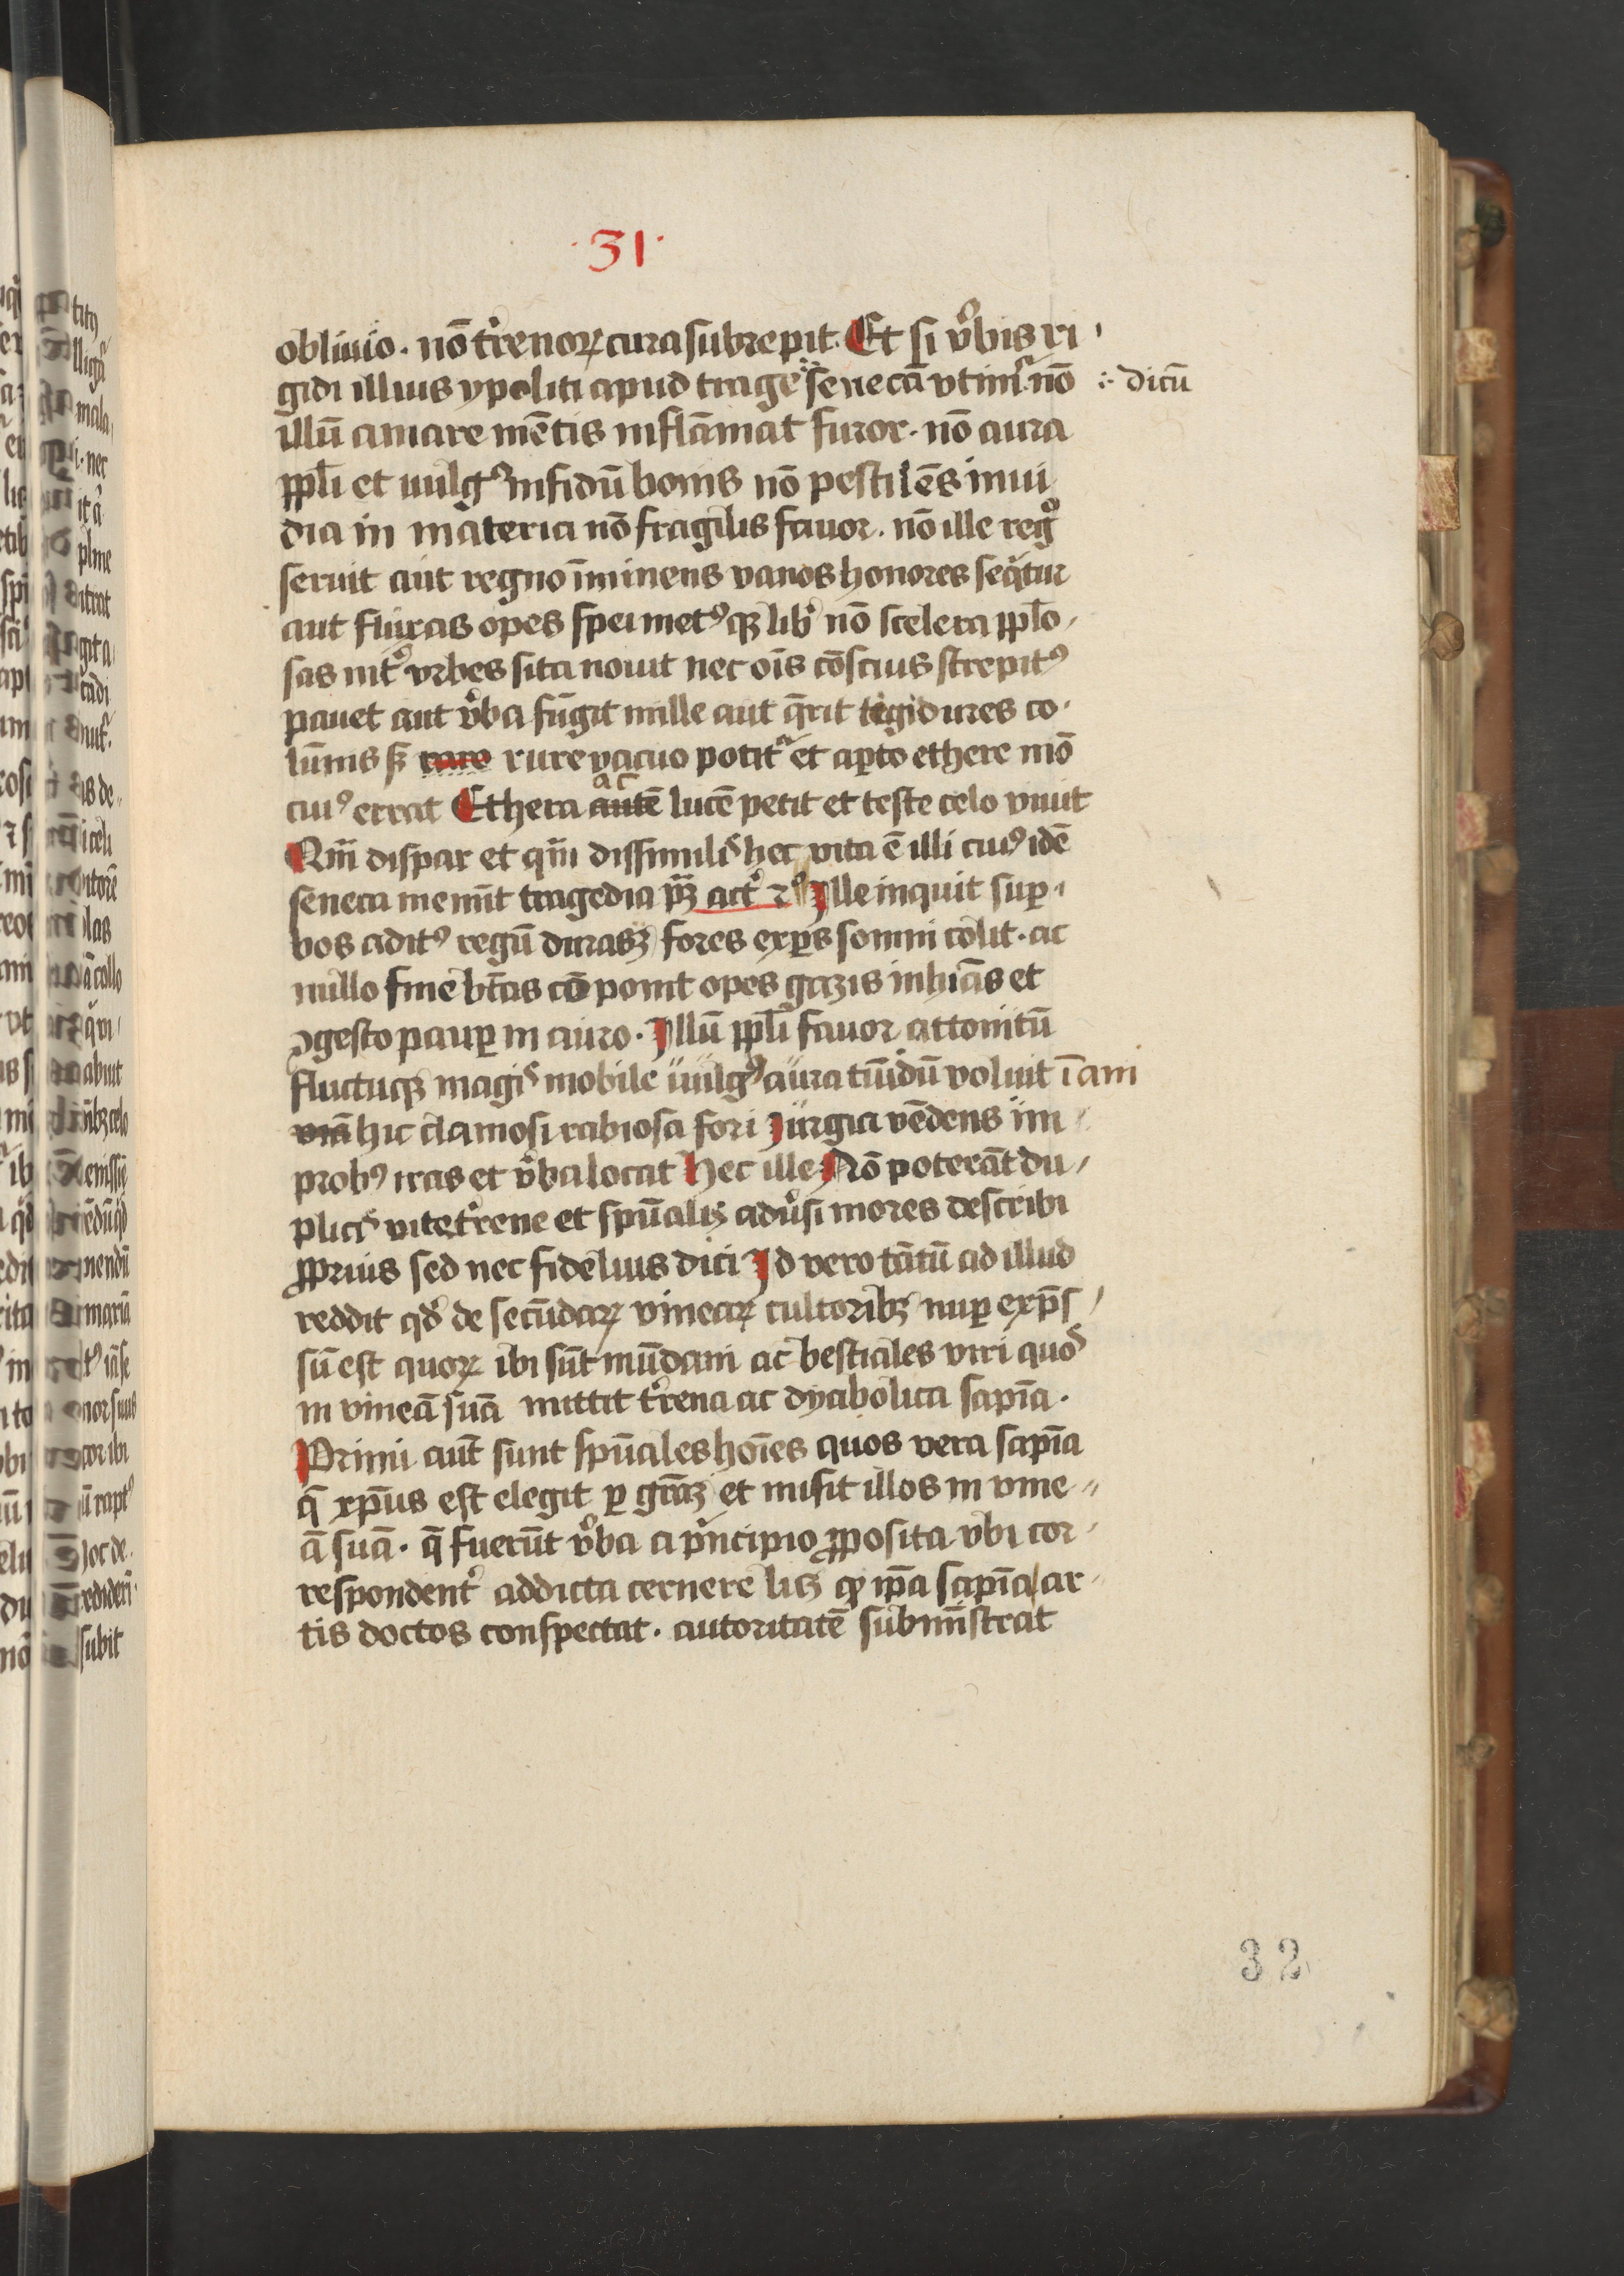 ·31·
obliuio · nō t̓renoꝝ cura subrepit · Et si v̓bis ri
gidi illius ypoliti apud trage senecā vtimr̄ nō ·:· dicū
illū amare mētis inflāmat furor · nō aura
ppl̄i et uulgꝰ infidū bonis nō pestilēs inui
dia in materia nō fragilis fauor · nō ille regͦ
seruit aut regno īminens vanos honores seqͥtur
aut fluxas opes spei metꝰ qꝫ lib̓ nō scelera ppl̄o
sas int̓ vrbes sita nouit nec oīs cōscius strepitꝰ
pauet aut v̓ba fūgit mille aut q̄rit tegi diues co
lūnis sꝫ rare rure vacuo potitᷓ et aꝑto ethere īnō
cuiꝰ errat Ethera autē ac lucē petit et teste celo viuit
Qm̄ dispar et qm̄ dissimilis hec vita ē illi cuiꝰ idē
seneca memīt tragedia pͥꝫ act̓ 2ͦ Ille inquit suꝑ
bos aditꝰ regū durasqꝫ fores exꝑs somni colit · ac
nullo fine btās cō ponit opes gazis inhiās et
ꝯgesto pauꝑ in auro · Illū ppl̄i fauor attonitū
fluctuqꝫ magis mobile uulgꝰ aura tūidū voluit īani
viā hic clamosi rabiosa fori Jurgia vēdens im
probꝰ iras et v̓ba locat Hec ille Nō poterāt du
plicis vite t̓rene et spūalis adu̓si mores describi
ꝓprius sed nec fidelius dici Id vero tātū ad illud
reddit qd̓ de secūdaꝝ vineaꝝ cultoribꝫ nuꝑ exp̄s
sū est quoꝝ ibi sūt mūdani ac bestiales viri quos
in vineā suā mittit t̓rena ac dyabolica sapīa ·
Primi aut̄ sunt spūales hoīes quos vera sapīa
q̄ xp̄us est elegit ꝑ grāꝫ et misit illos in vine
ā suā · q̄ fuerūt v̓ba a pͥncipio ꝓposita vbi cor
respondent̓ addicta cernere lisꝫ qꝫ ip̄a sapīa ar
tis doctos conspectat · autoritatē submīstrat
32